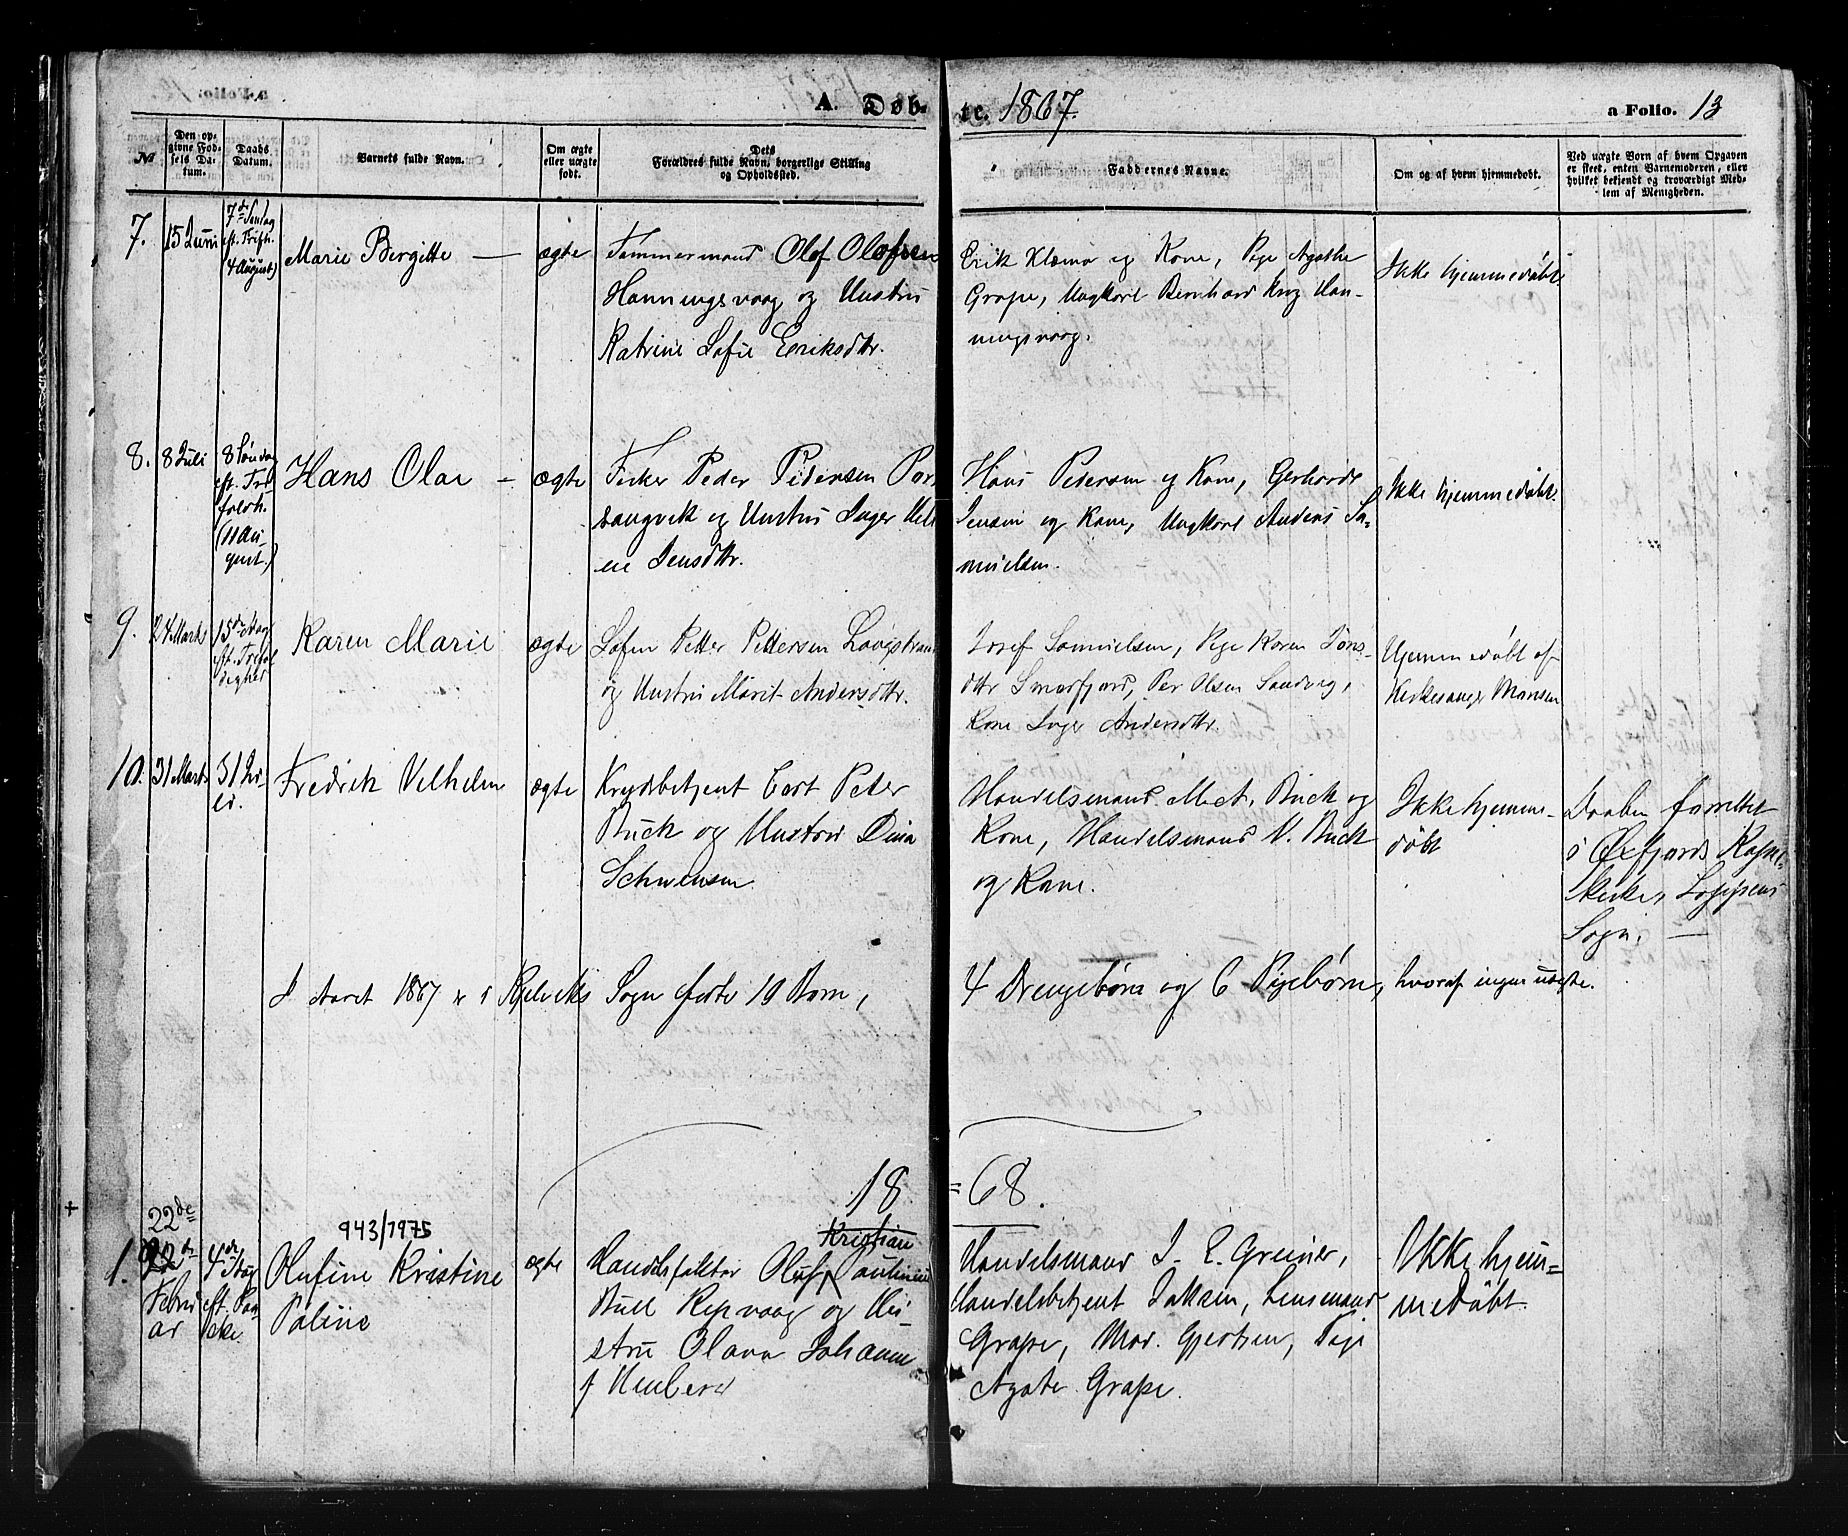 A. Døb-
te. 1867.
a Folio. 13
№
Den op-
givne Fød-
sels Da-
tum.
Daabs
Datum.
Barnets fulde Navn.
Om ægte
eller uægte
født.
Dets
Forældres fulde Navn, borgerlige Stilling
og Opholdssted.
Faddernes Navne.
Om og af hvem hjemmedøbt.
Ved uægte Børn af hvem Opgaven
er skeet, enten Barnemoderen, eller
hvilket bekjendt og troværdigt Med-
lem af Menigheden.
7.
15 Juni
7de Søndag
eft. Trefh.
4 August)
Marie Bergitte —
ægte
Tømmermand Olof Olofsen
Honningsvaag og Hustru
Katrine Sofie Eriksdtr.
Erik Klæmo og Kone, Pige Agathe
Grape, Ungkarl Bernhard Krog Hon-
ningsvaag.
Ikke hjemmedøbt.
8.
8 Juli
8 Søndag
eft. Tre-
foldh.
(11 Au-
gust.)
Hans Olai —
ægte
Fisker Peder Pedersen Por
sangvik og Hustru Inger Hele
ne Jensdtr.
Hans Pedersen og Kone, Gerhard
Jensen og Kone, Ungkarl Anders Sa-
muelsen.
Ikke hjemmedøbt.
9.
24 Marts
15de Søndag
eft. Trefol
dighed
Karen Marie
ægte
Søfin Petter Pettersen
og Hustru Marit Andersdtr.
Josef Samuelsen, Pige Karen Jøns-
dtr Smørfjord, Per Olsen Sandvig,
Kone Inger Andersdtr.
Hjemmedøbt af
Kirkesanger Monsen
10.
31 Marts
31 Ju-
li.
Fredrik Vilhelm
ægte
Krydsbetjent Cort Peter
Buck og Hustru Dina
Schwensen
Handelsmand M. A. Buck og
Kone, Handelsmand V. Buck
og Kone.
Ikke hjemme-
døbt
Daaben forrettet
i Øxfjords Kapel-
kirke, Loppens
Sogn. —
I Aaret 1867 er i Kjelviks Sogn fødte 10 Børn,
4 Drengebørn og 6 Pigebørn, hvoraf ingen uægte.
18
= 68.
943/1975
1.
22de
22de
Febru
ar
4de Søndag
eft. Paa
ske
Olufine Kristine
Paline
ægte
Kristian
Handelsfaktor Oluf Paulinius
Bull Repvaag og Hu-
stru Olava Johanne
f
Handelsmand J. E. Greiner,
Handelsbetjent Jaksen, Lensmand
Grape, Mad. Gjertsen, Pige
Agate Grape.
Ikke hjem=
medøbt.